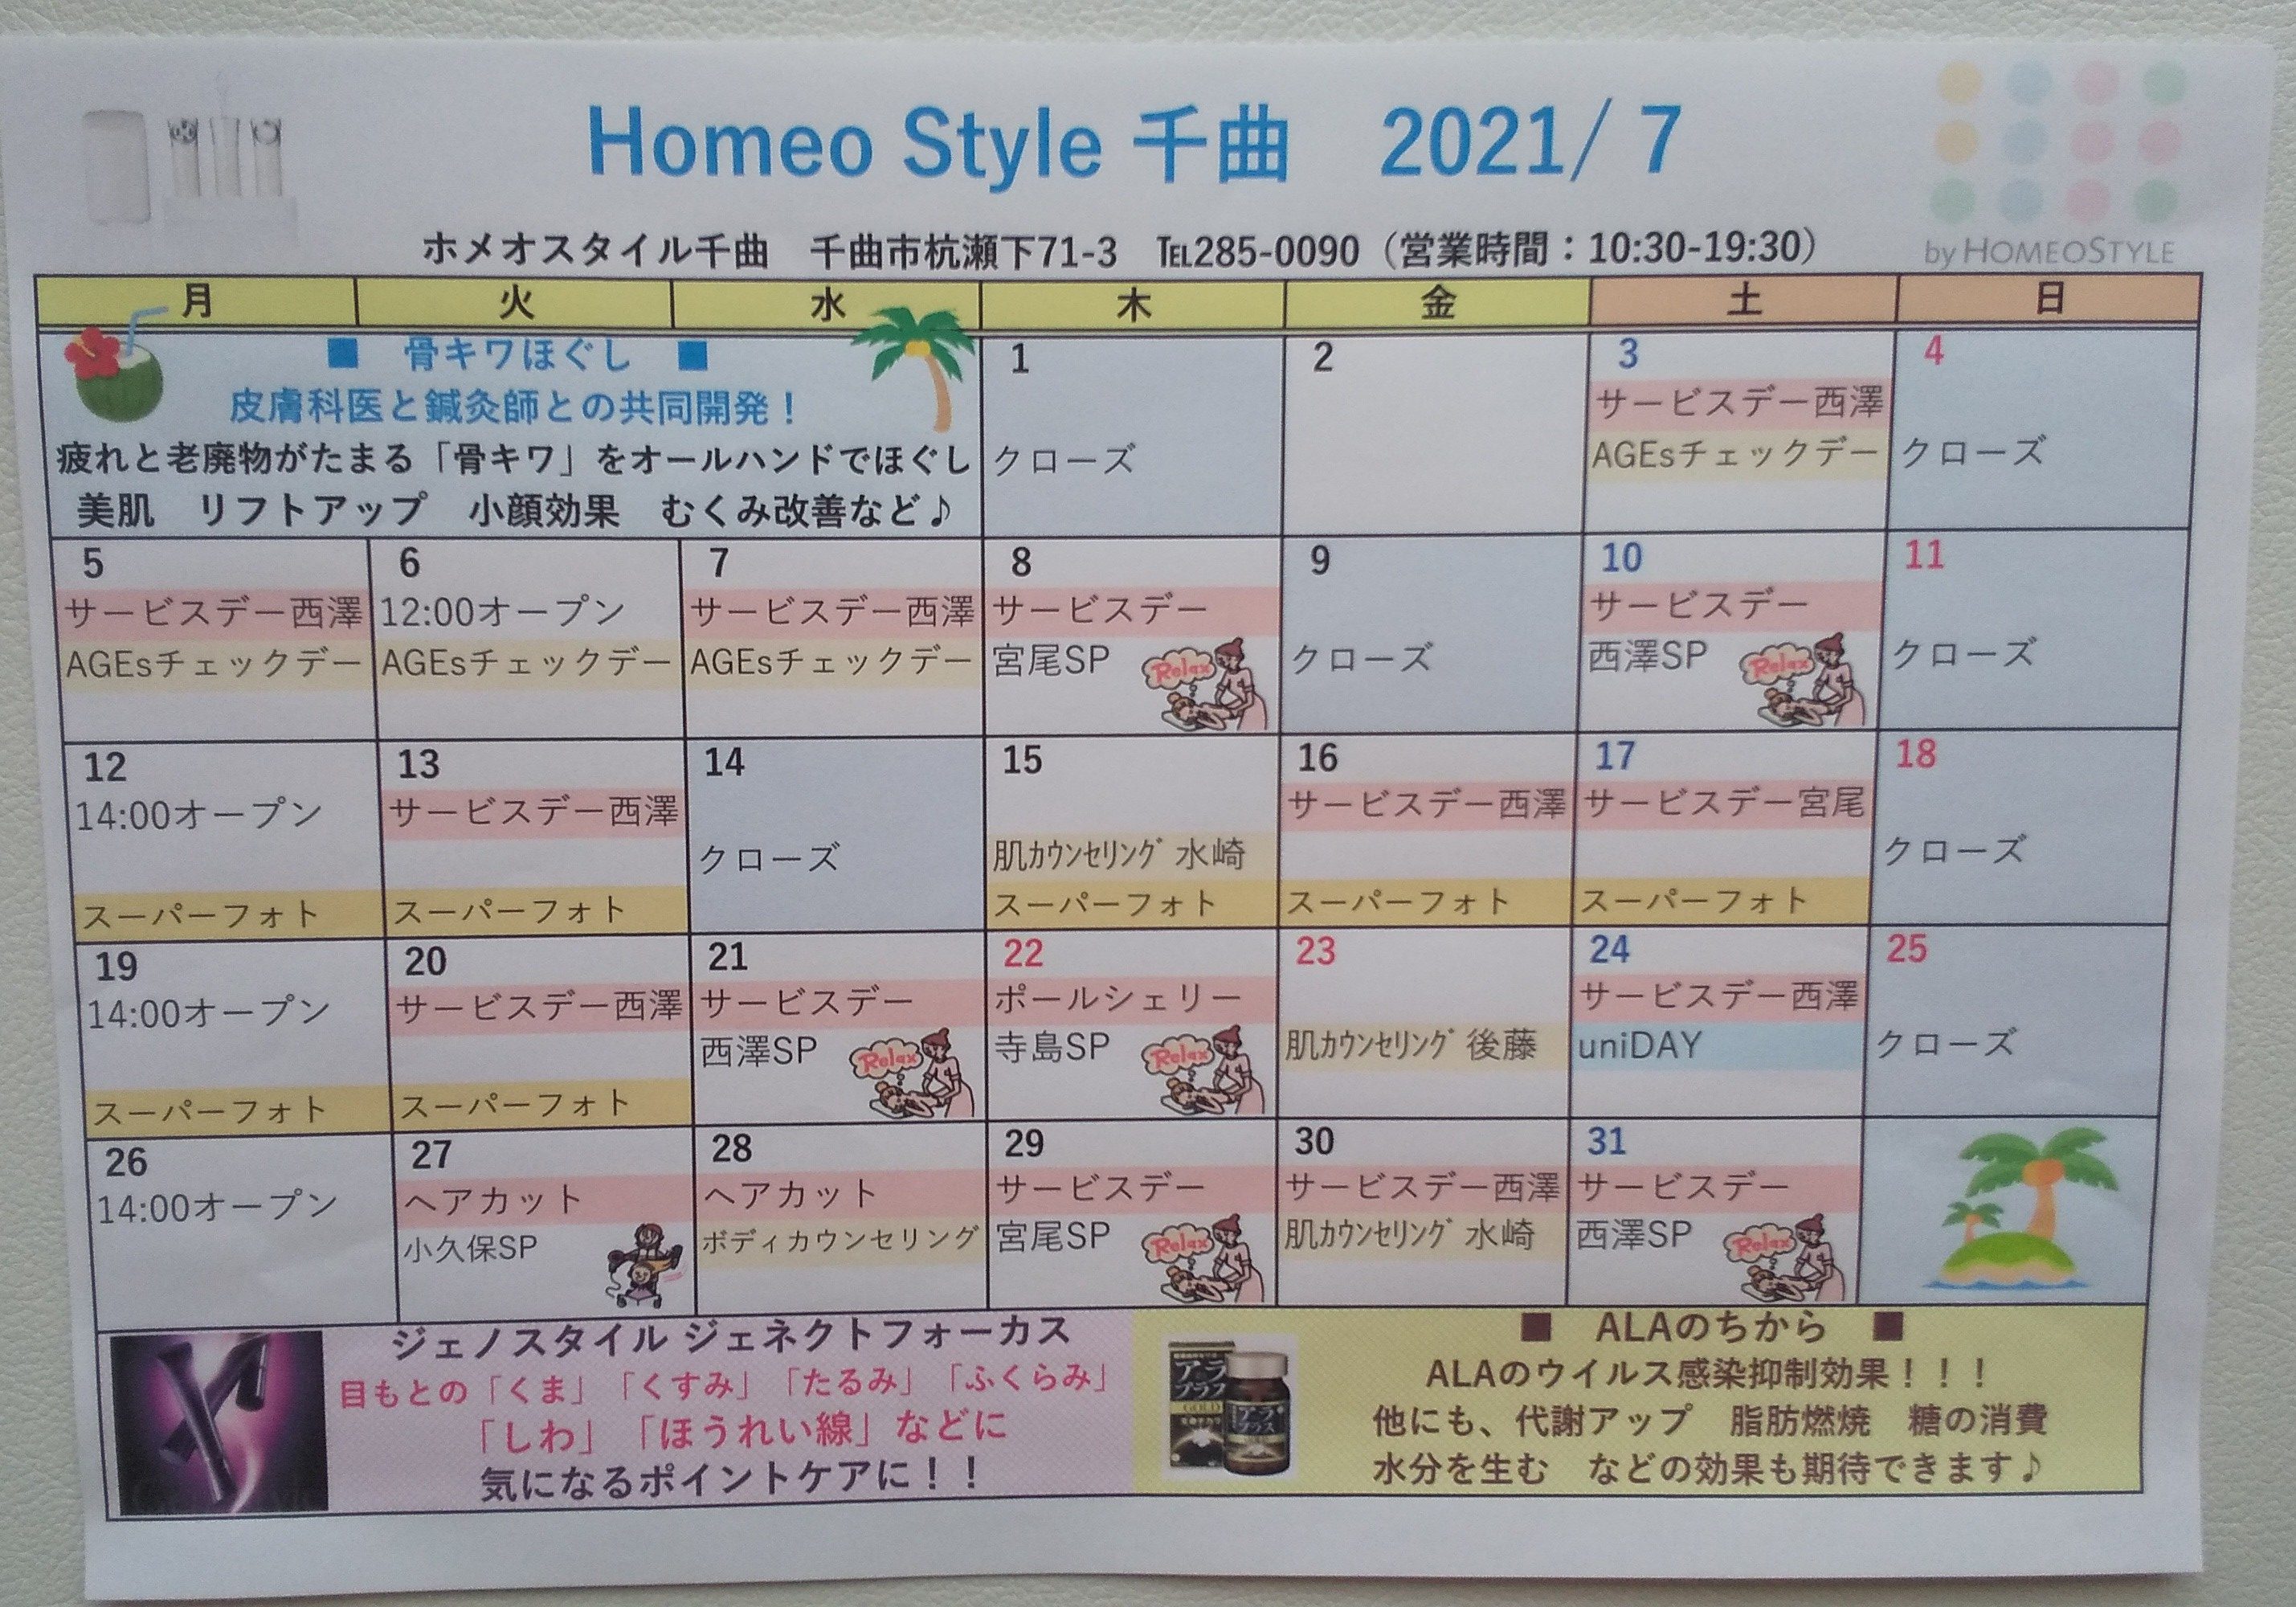 Homeo Style 千曲　2021/ 7
ホメオスタイル千曲　千曲市杭瀬下71-3　℡285-0090（営業時間：10:30-19:30）
by HOMEOSTYLE
月 火 水 木 金 土 日
■　骨キワほぐし　■
皮膚科医と鍼灸師との共同開発！
疲れと老廃物がたまる「骨キワ」をオールハンドでほぐし
美肌　リフトアップ　小顔効果　むくみ改善など♪
1
クローズ
2
3
サービスデー西澤
AGEsチェックデー
4
クローズ
5
サービスデー西澤
AGEsチェックデー
6
12:00オープン
AGEsチェックデー
7
サービスデー西澤
AGEsチェックデー
8
サービスデー
宮尾SP
Relax
9
クローズ
10
サービスデー
西澤SP
Relax
11
クローズ
12
14:00オープン
スーパーフォト
13
サービスデー西澤
スーパーフォト
14
クローズ
15
肌ｶｳﾝｾﾘﾝｸﾞ 水崎
スーパーフォト
16
サービスデー西澤
スーパーフォト
17
サービスデー宮尾
スーパーフォト
18
クローズ
19
14:00オープン
スーパーフォト
20
サービスデー西澤
スーパーフォト
21
サービスデー
西澤SP
Relax
22
ポールシェリー
寺島SP
Relax
23
肌ｶｳﾝｾﾘﾝｸﾞ 後藤
24
サービスデー西澤
uniDAY
25
クローズ
26
14:00オープン
27
ヘアカット
小久保SP
28
ヘアカット
ボディカウンセリング
29
サービスデー
宮尾SP
Relax
30
サービスデー西澤
肌ｶｳﾝｾﾘﾝｸﾞ 水崎
31
サービスデー
西澤SP
Relax
ジェノスタイル ジェネクトフォーカス
目もとの「くま」「くすみ」「たるみ」「ふくらみ」
「しわ」「ほうれい線」などに
気になるポイントケアに！！
アラ
プラス
GOLD
■　ALAのちから　■
ALAのウイルス感染抑制効果！！！
他にも、代謝アップ　脂肪燃焼　糖の消費
水分を生む　などの効果も期待できます♪